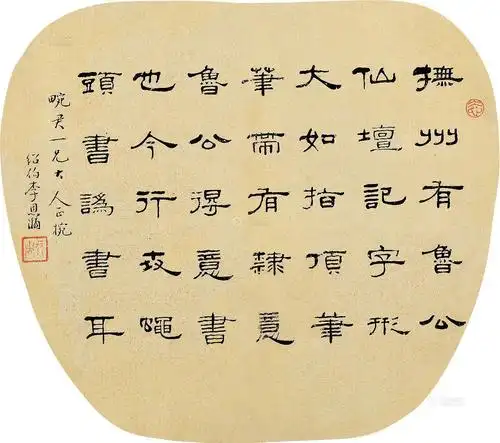 撫州有魯公
仙壇記字形
大如指頂筆
筆帶有隸意
魯公得意書
也今行世蠅
頭書譌書耳
畹君一兄大人正腕
紹伯李恩